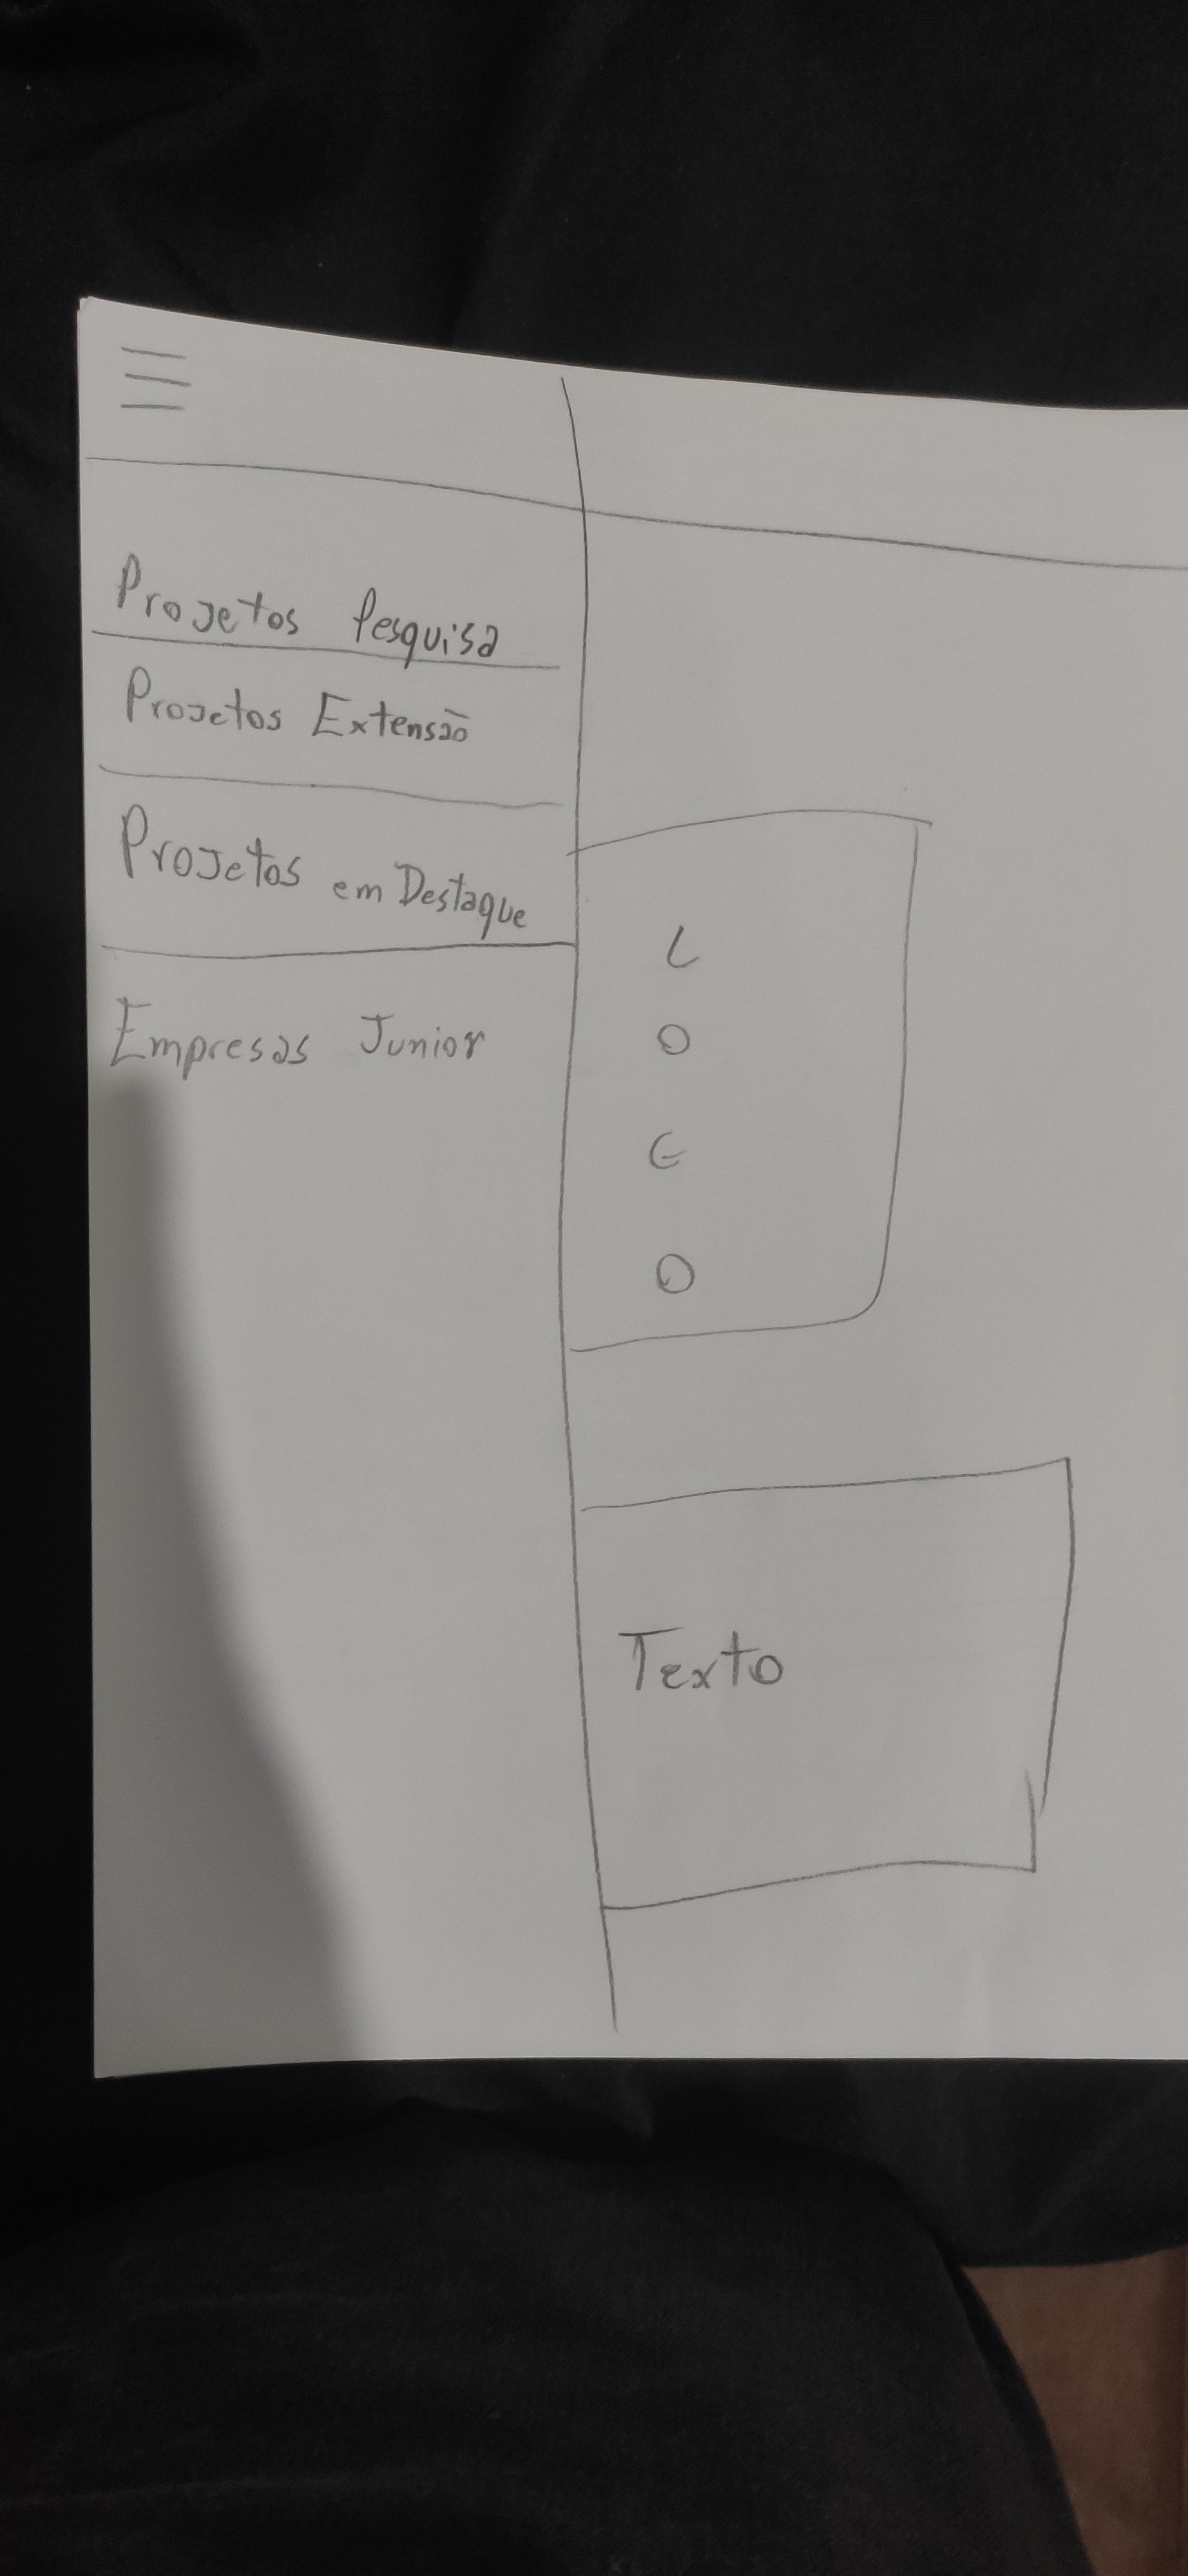 Projetos Pesquisa
Projetos Extensão
Projetos em Destaque
Empresas Junior
L
O
G
O
Texto